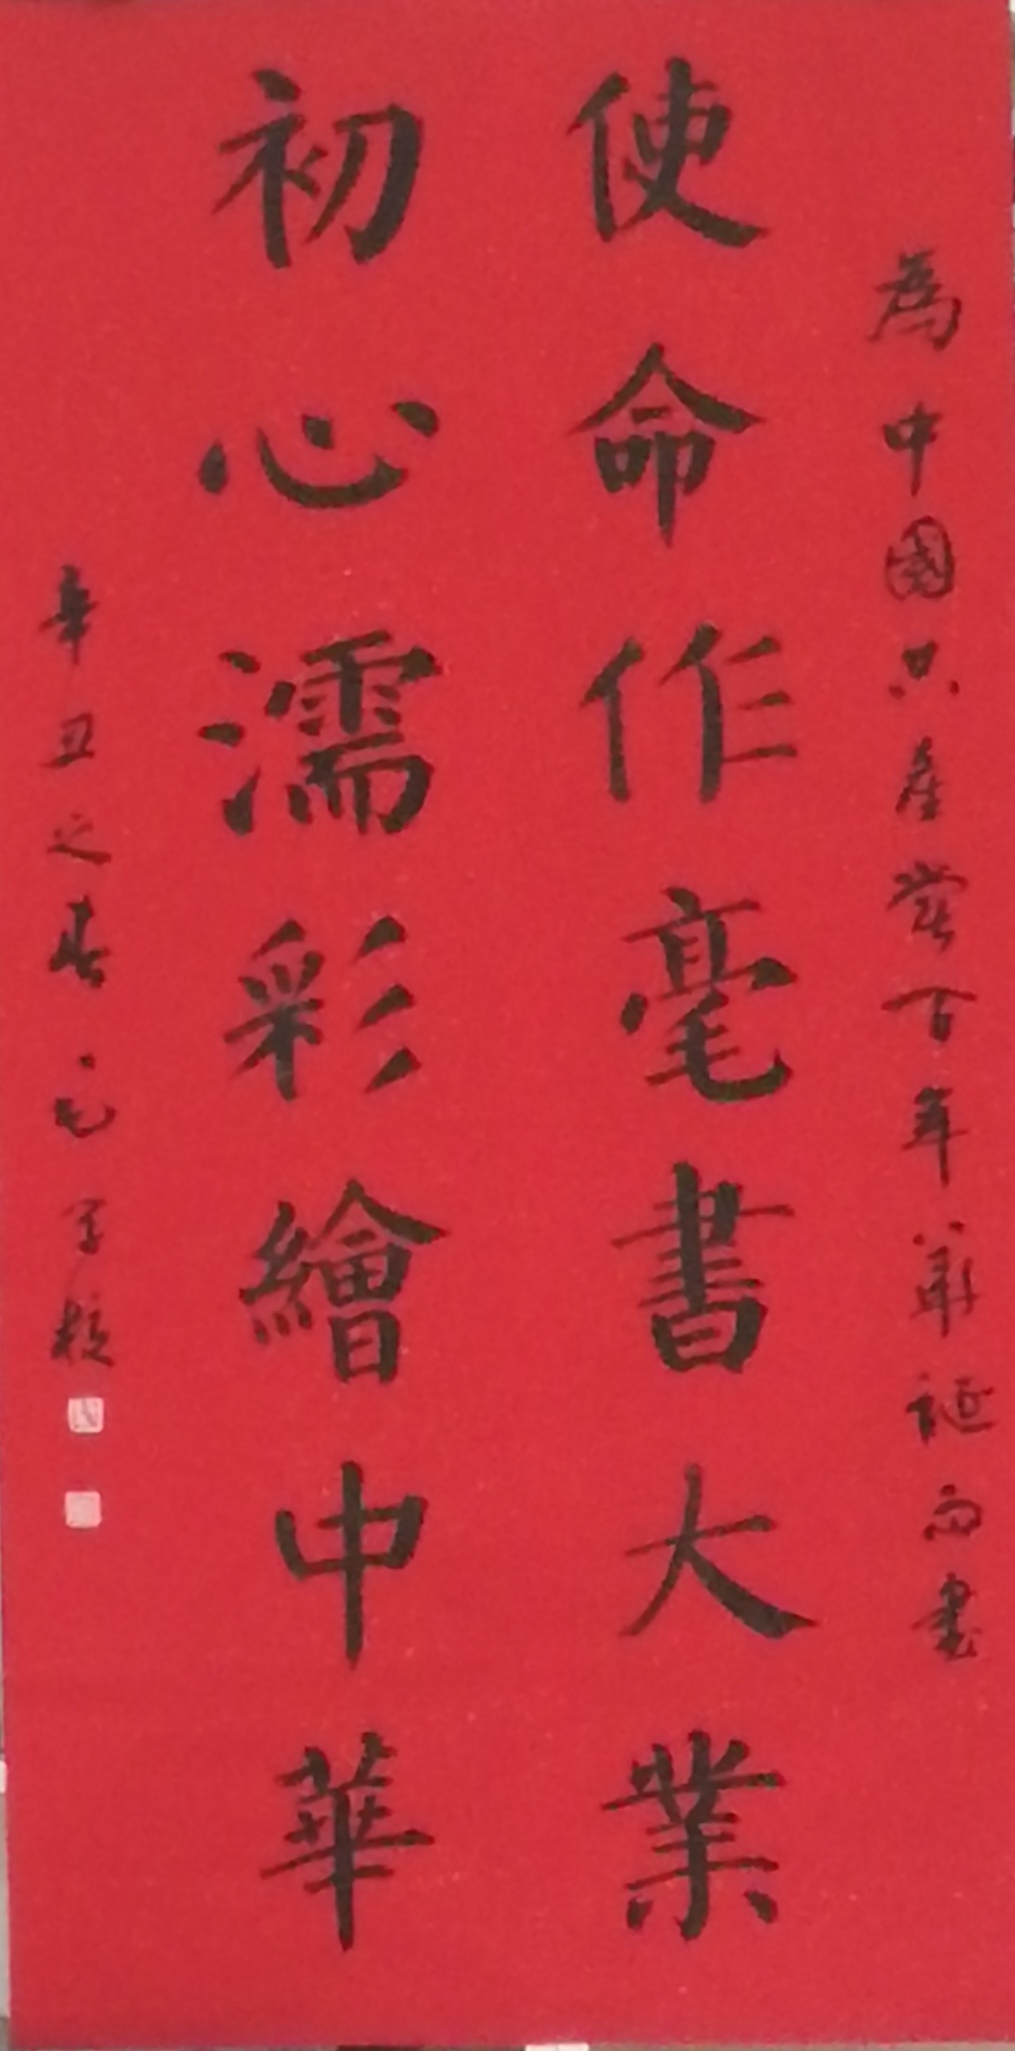 為中國共産黨百年華誕而書
使命作毫書大業
初心濡彩繪中華
辛丑之春